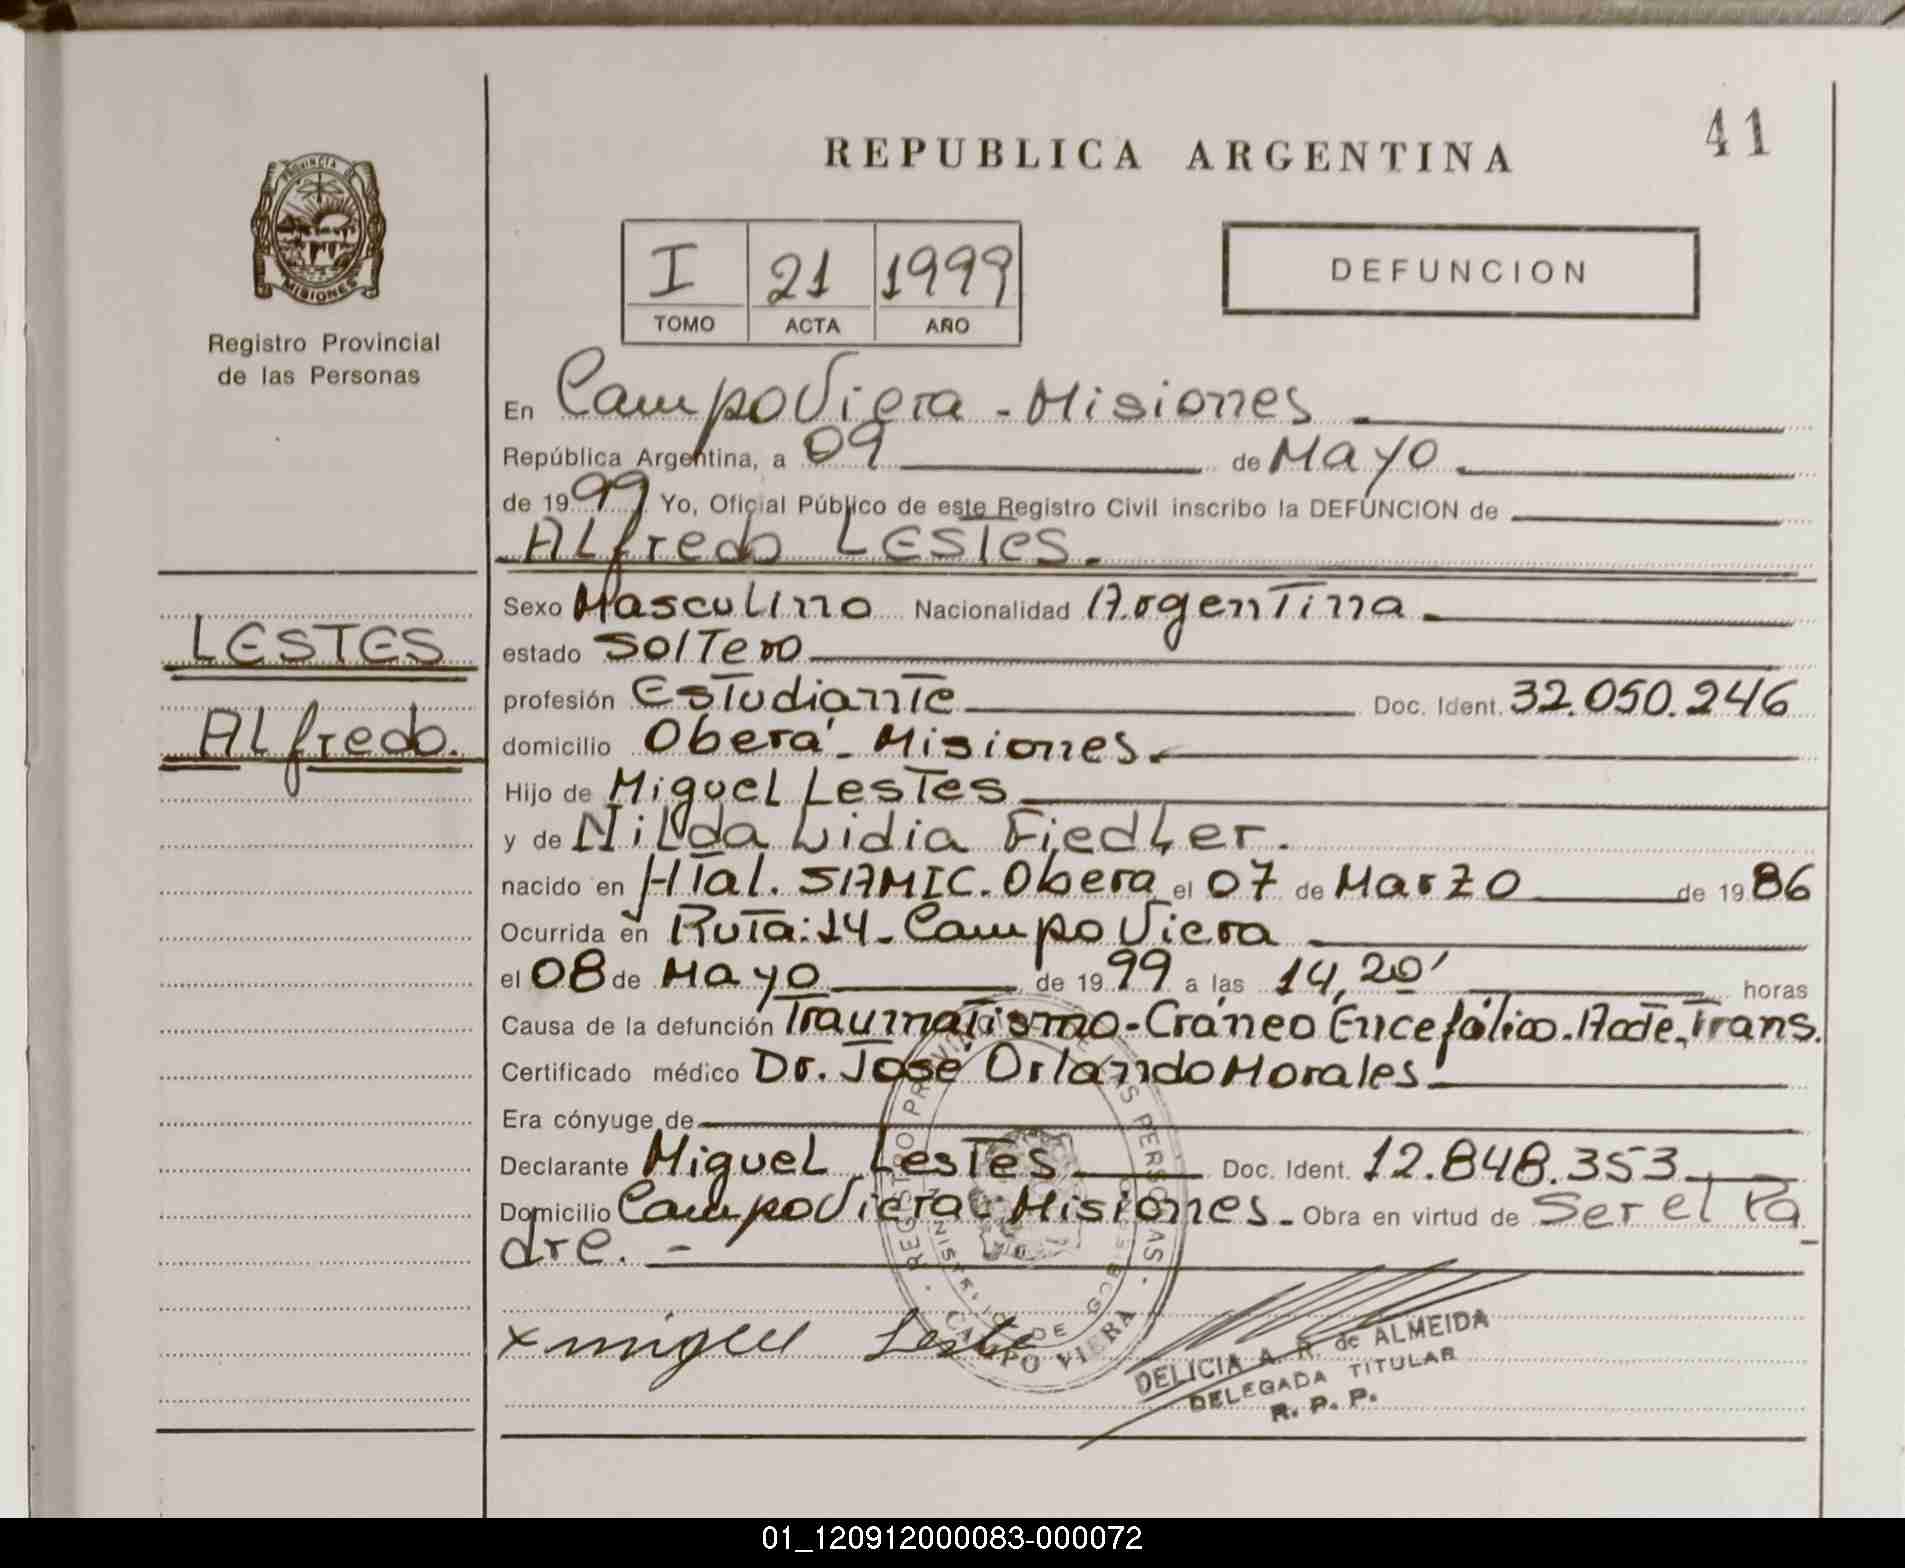 41
REPUBLICA ARGENTINA
PROVINCIA DE
MISIONES
Registro Provincial
de las Personas
I 21 1999
TOMO ACTA AÑO
DEFUNCION
En Campo Viera - Misiones
República Argentina, a 09 de Mayo
de 1999 Yo, Oficial Público de este Registro Civil inscribo la DEFUNCION de
ALfredo LESTES.
LESTES
ALfredo.
Sexo Masculino Nacionalidad Argentina
estado Soltero
profesión Estudiante Doc. Ident. 32.050.246
domicilio Oberá - Misiones.
Hijo de Miguel Lestes
y de Nilda Lidia Fiedler.
nacido en HTal. SAMIC. Obera el 07 de Marzo de 1986
Ocurrida en Ruta: 14 - Campo Viera
el 08 de Mayo de 1999 a las 14,20' horas
Causa de la defunción Traumatismo - Cráneo Encefálico. Acte. Trans.
Certificado médico Dr. José Orlando Morales
Era cónyuge de
Declarante Miguel Lestes Doc. Ident. 12.848.353
Domicilio Campo Viera - Misiones - Obra en virtud de Ser el Pa
dre. -
x miguel Leste
CAMPO VIERA
DELICIA A. R. de ALMEIDA
DELEGADA TITULAR
R. P. P.
01_120912000083-000072